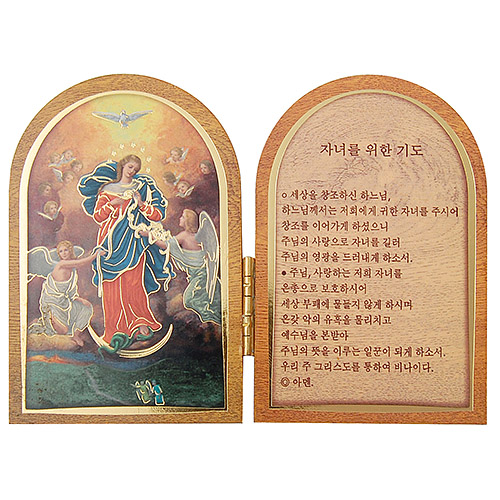 자녀를 위한 기도
○ 세상을 창조하신 하느님,
하느님께서는 저희에게 귀한 자녀를 주시어
창조를 이어가게 하셨으니
주님의 사랑으로 자녀를 길러
주님의 영광을 드러내게 하소서.
● 주님, 사랑하는 저희 자녀를
은총으로 보호하시어
세상 부패에 물들지 않게 하시며
온갖 악의 유혹을 물리치고
예수님을 본받아
주님의 뜻을 이루는 일꾼이 되게 하소서.
우리 주 그리스도를 통하여 비나이다.
◎ 아멘.